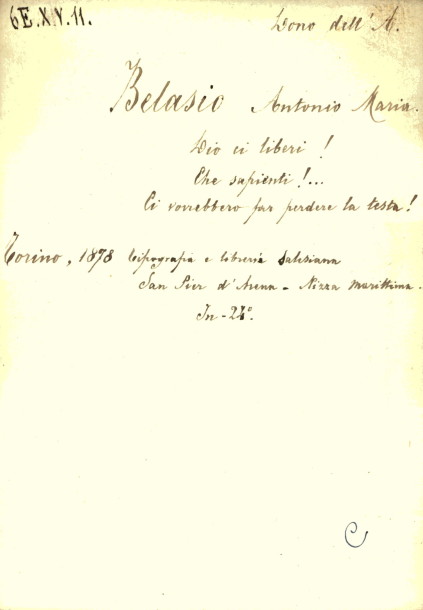 6E.XV.11.
Dono dell'A.
Belasio Antonio Maria.
Dio ci liberi!
Che sapienti!...
Ci vorrebbero far perdere la testa!
Torino, 1878 tipografia e libreria salesiana
San Pier d'Arena - Nizza marittima.
In-24°.
C